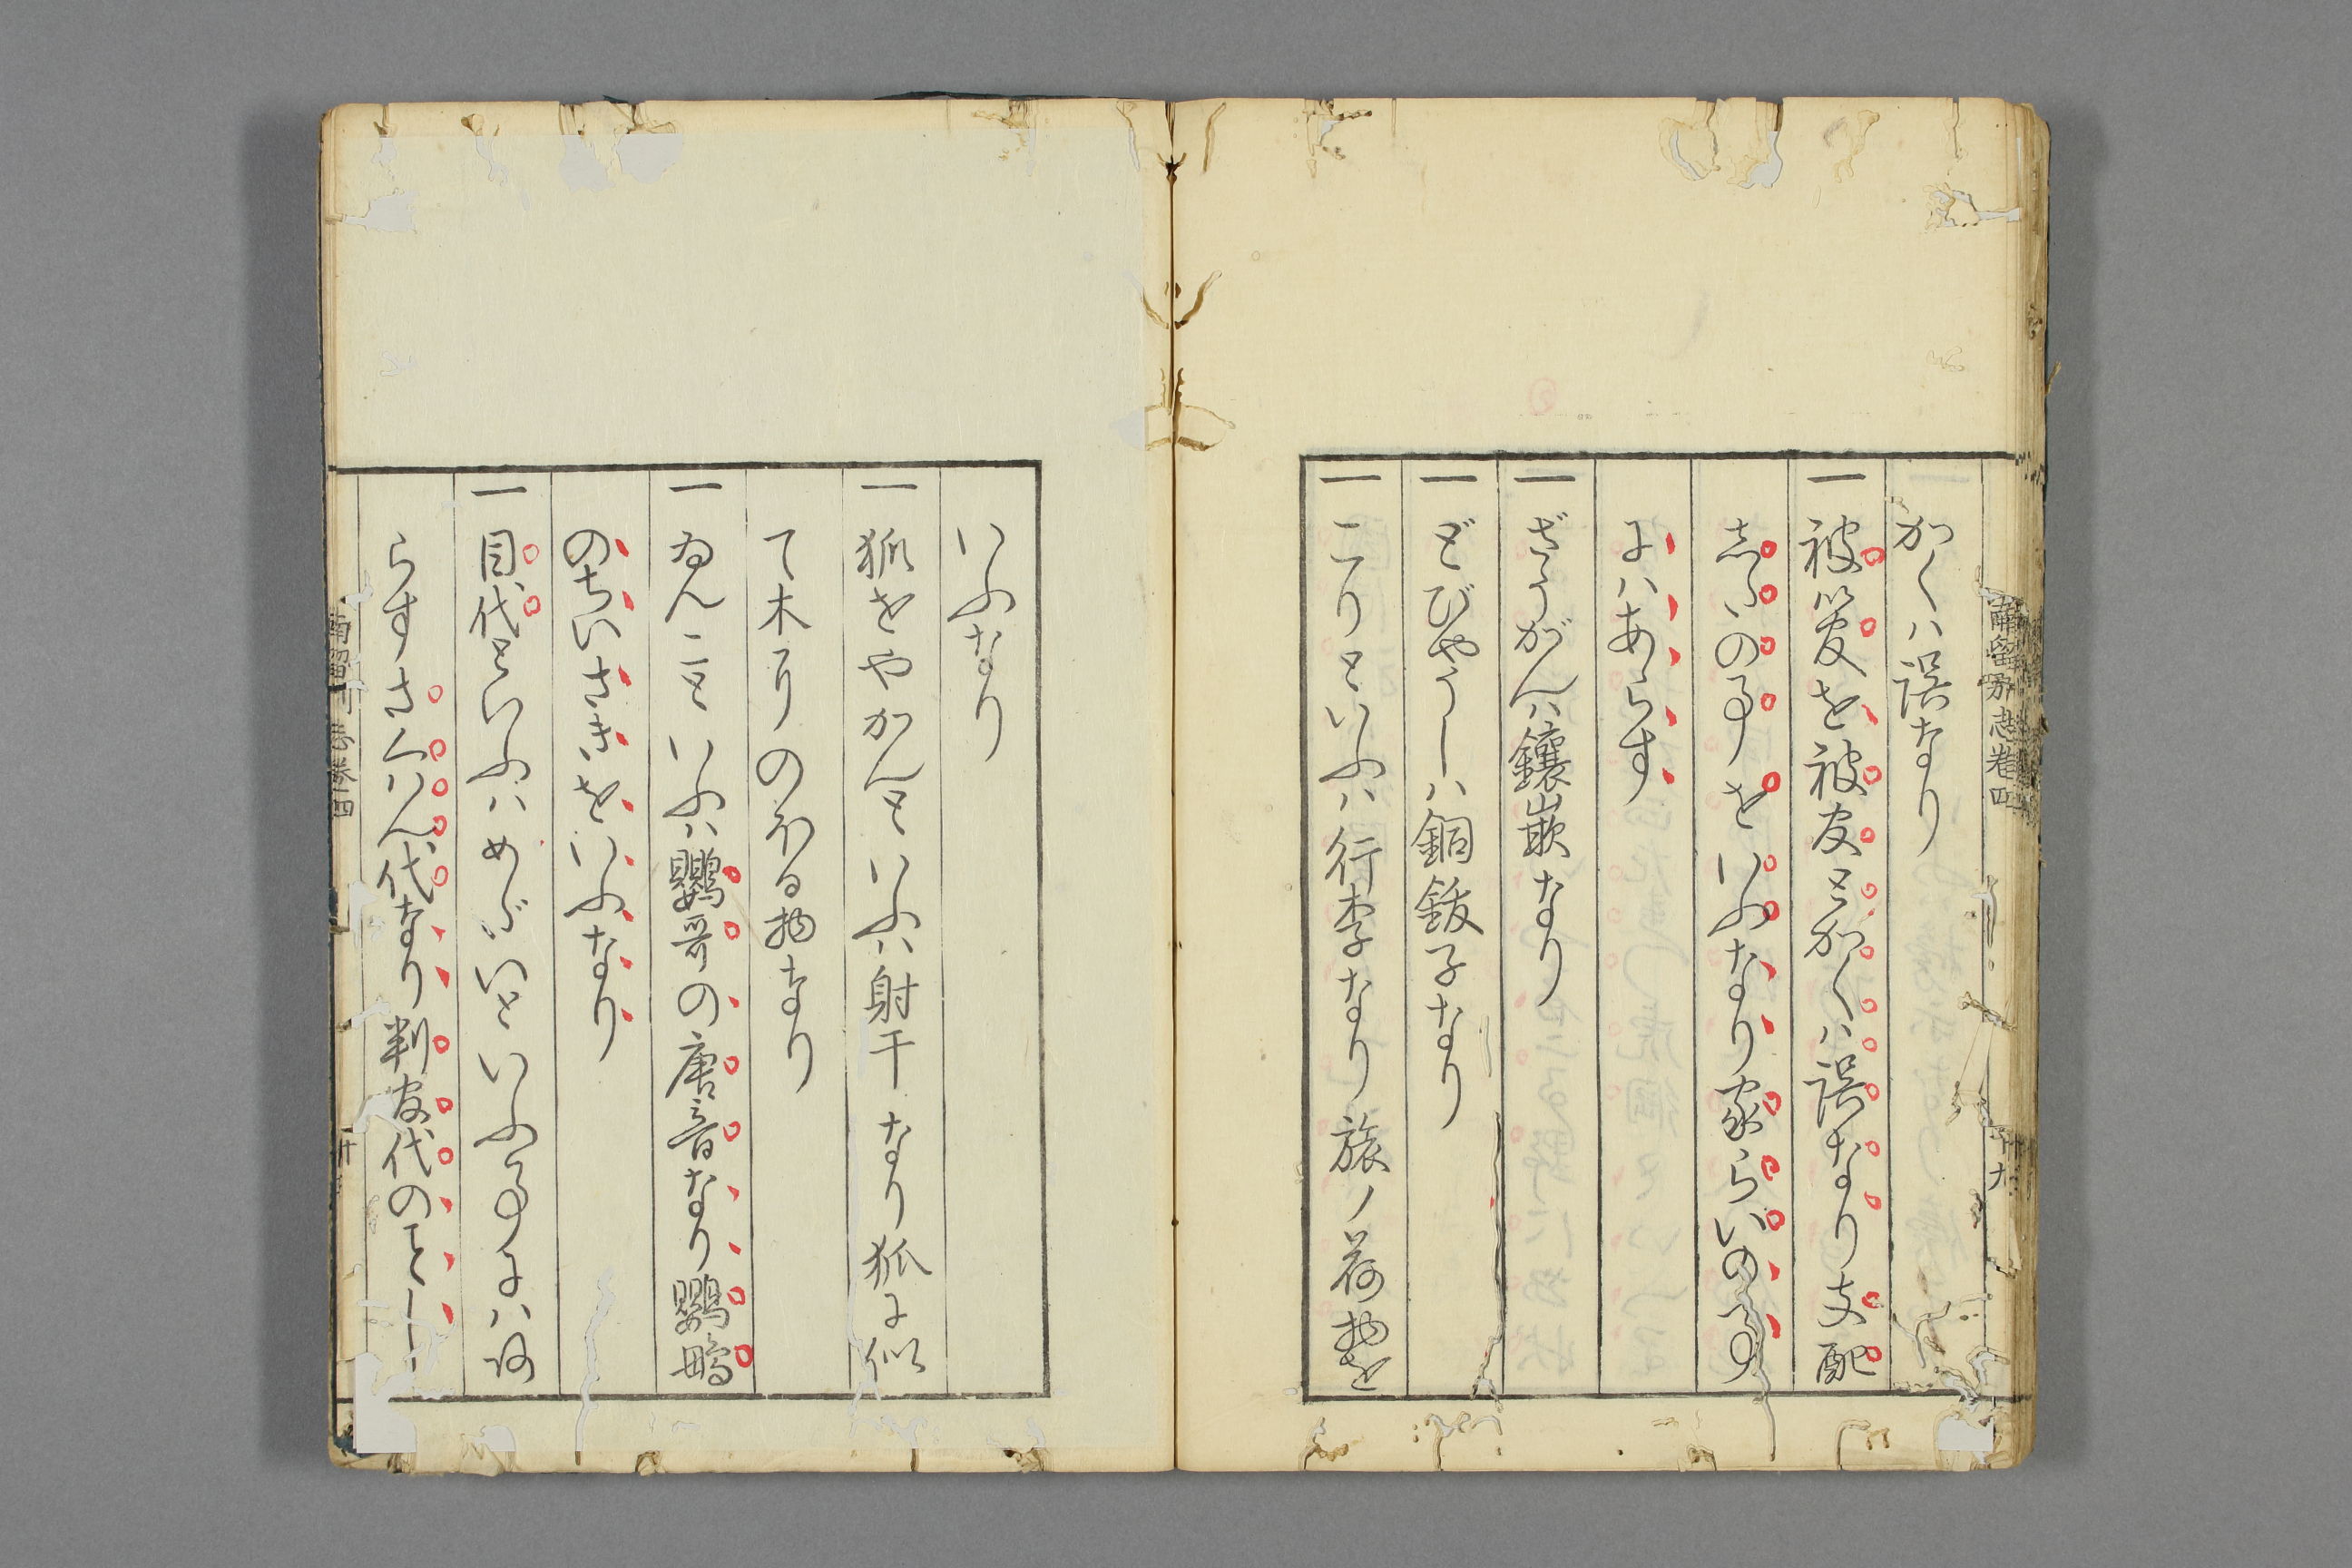 かくハ誤なり
一被官を被官とかくハ誤なり支配
志たの事をいふなり家らいの事
にハあらす
一ざうがんハ鑲嵌なり
一どびやうしハ銅鈸子なり
一こりといふハ行李なり旅ノ荷物を
いふなり
一狐をやかんといふハ射干なり狐に似
て木にのぼる物なり
一ゐんこといふハ鸚哥の唐音なり鸚鵡
のちいさきをいふなり
一目代といふハめじろといふ事にハあ
らすさくはん代なり判官代のことし
南留別志巻四
十九